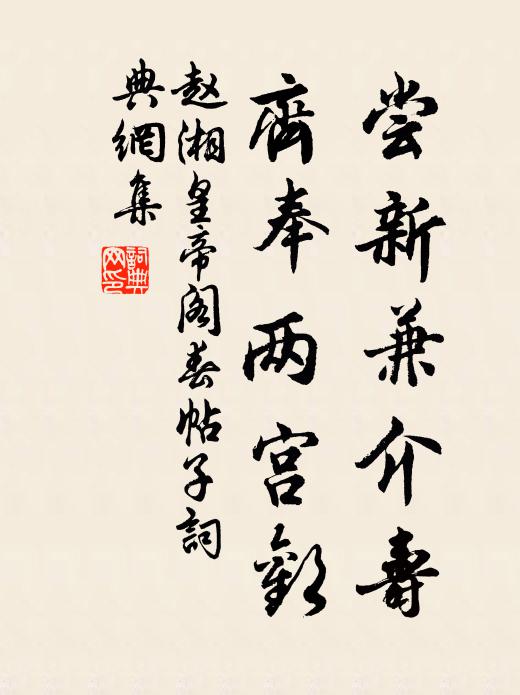 尝新兼介寿
齊奉两宫歡
赵湘皇帝阁春帖子詞
典網集
詞典网印